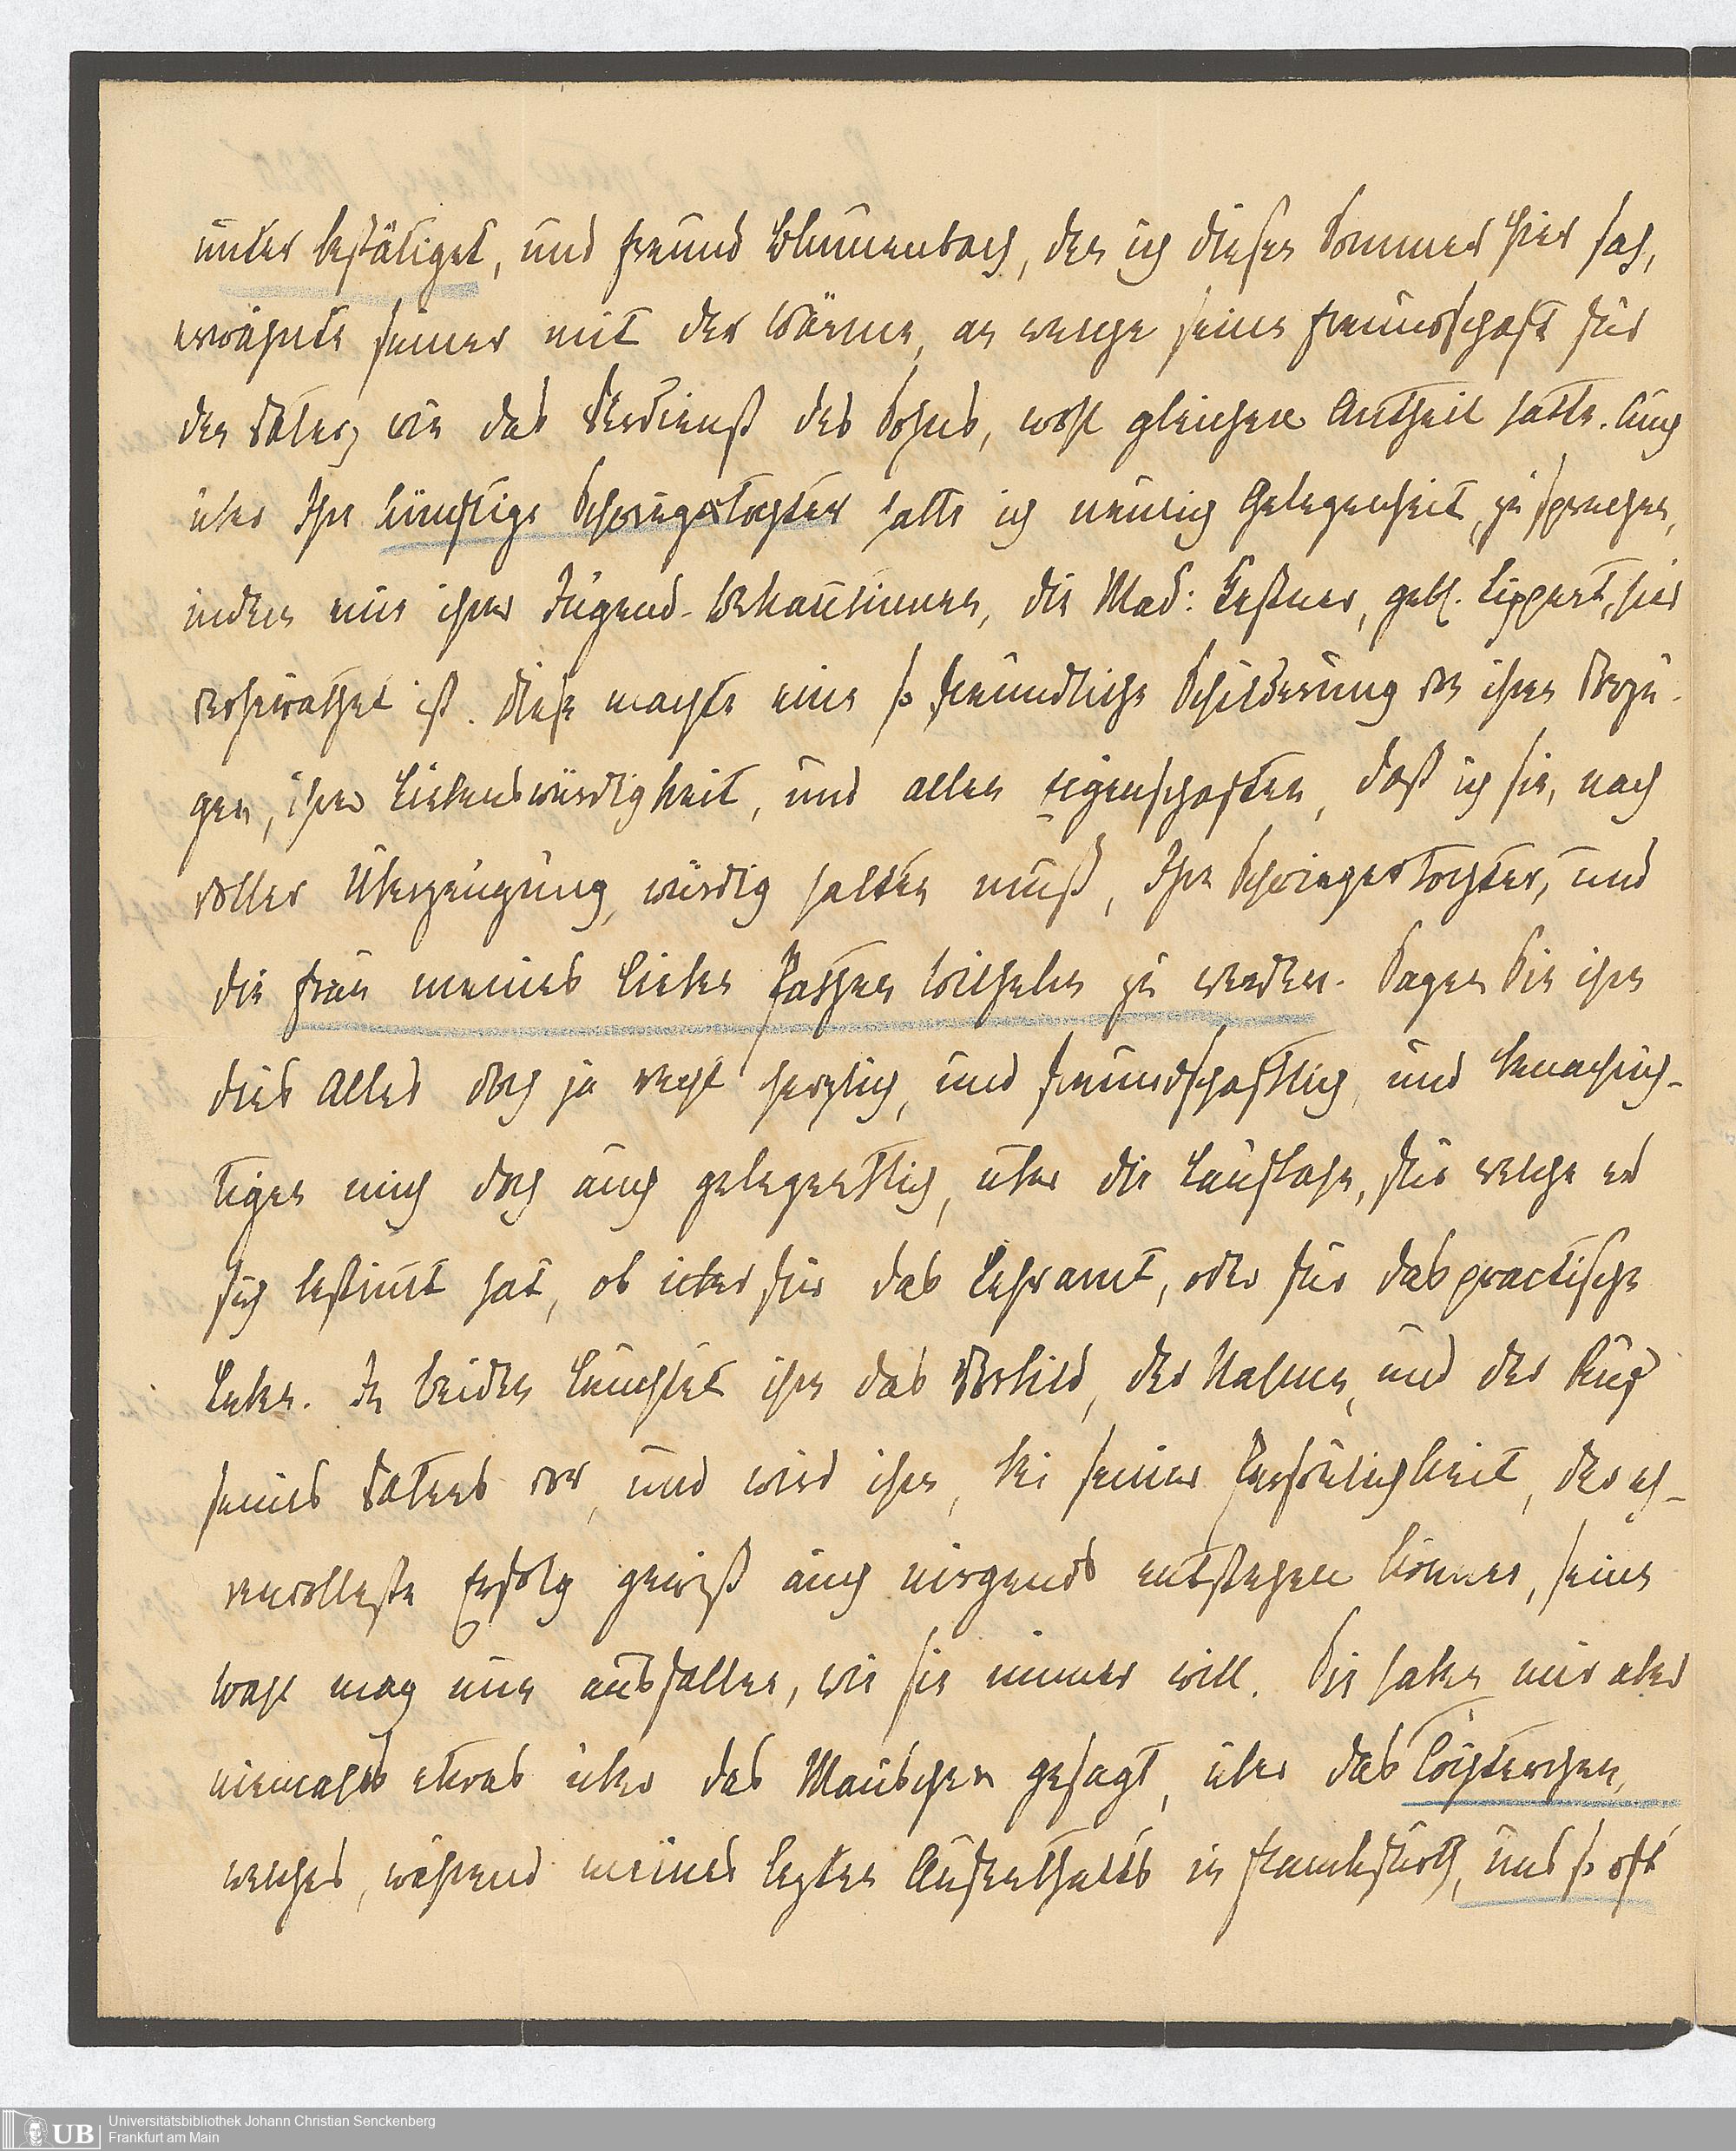 unter bestätiget, und Freund Blumenbach, den ich diesen Sommer hier sah,
erwähnte seiner mit der Wärme, an welche seine Freundschaft für
den Vater, wie das Verdienst des Sohns, wohl gleichen Antheil hatte. Auch
über Ihre künftige Schwiegertochter hatte ich neulich Gelegenheit, zu sprechen,
indem eine ihrer Jugend-Bekantinnen, die Mad: Kestner, geb. Lippert, hier
verheirathet ist. Diese machte eine so freundliche Schilderung von ihren Vorzü-
gen, ihrer Liebenswürdigkeit, und allen Eigenschaften, daß ich sie, nach
voller Überzeugung, würdig halten muß, Ihre Schwiegertochter, und
die Frau meines lieben Pathen Wilhelm zu werden. Sagen Sie ihm
dies Alles doch ja recht herzlich, und freundschaftlich, und benachrich-
tigen mich doch auch gelegentlich, über die Laufbahn, für welche er
sich bestimt hat, ob über für das Lehramt, oder für das practische
Leben. In beiden leuchtet ihm das Vorbild, der Nahme, und der Ruf
seines Vaters vor, und wird ihm, bei seiner Persönlichkeit, der eh-
renvolleste Erfolg gewiß auch nirgends entstehen können, seine
Wahl mag nun ausfallen, wie sie immer will. Sie haben mir aber
niemahls etwas über das Mäuschen gesagt, über das Töchterchen,
welches, während meines lezten Aufenthalts in Frankfurth, uns so oft
Universitätsbibliothek Johann Christian Senckenberg
UB Frankfurt am Main